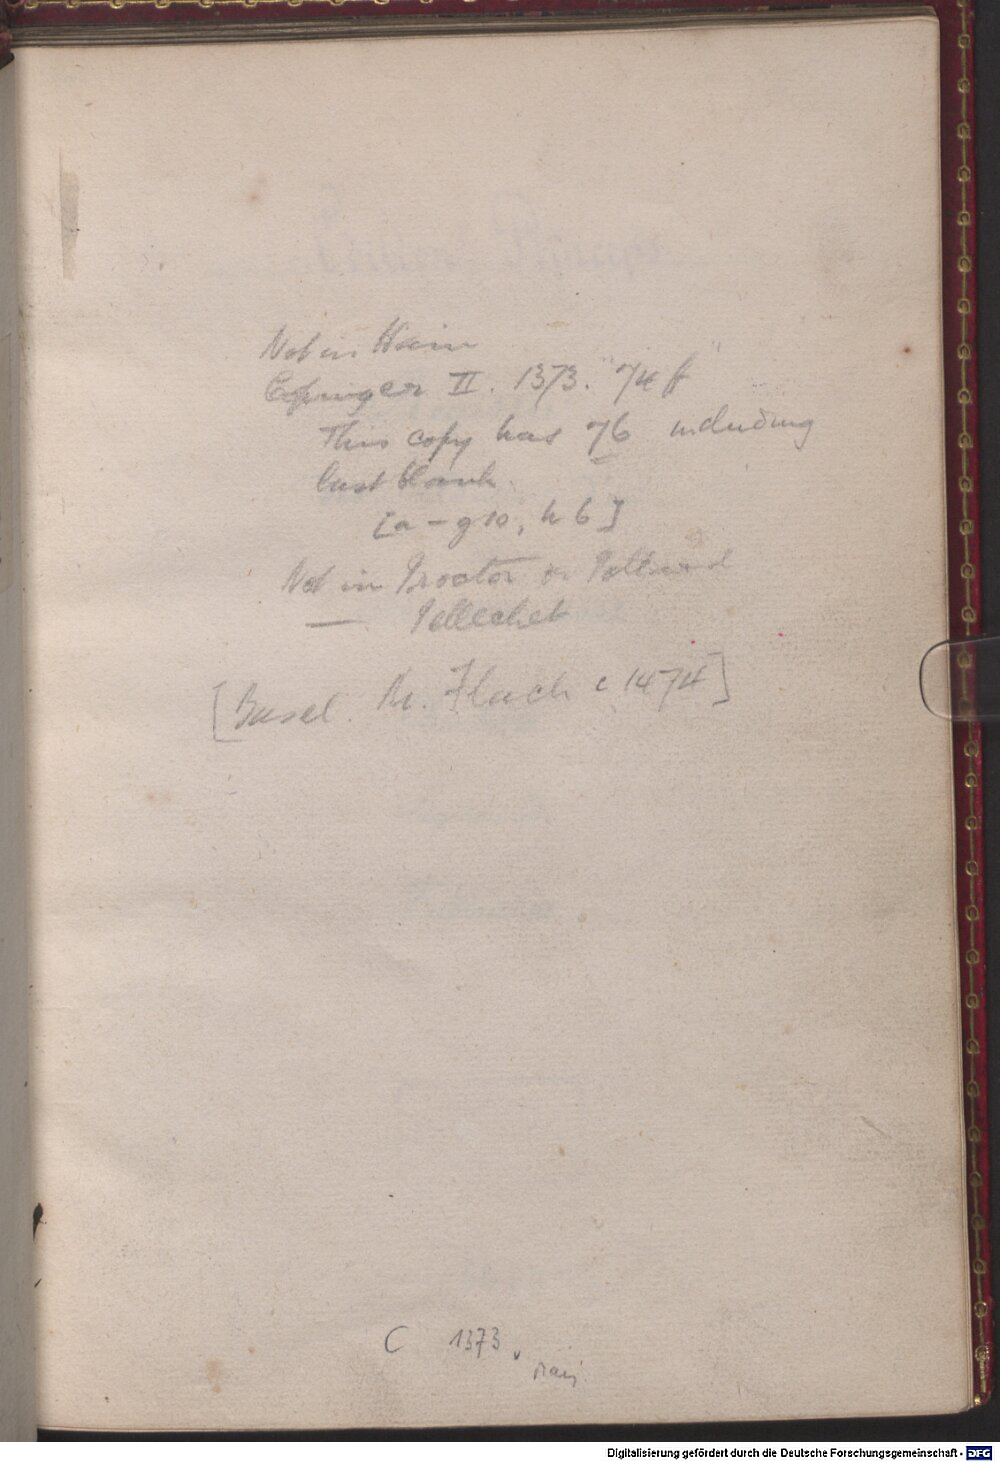 Not in Hain
Copinger II. 1373. "74 ff"
This copy has 76 including
last blank.
[a–g10, h6]
Not in Proctor or Pollard
— Pellechet
[Basel. M. Flach c 1474]
C 1373.
Digitalisierung gefördert durch die Deutsche Forschungsgemeinschaft - DFG